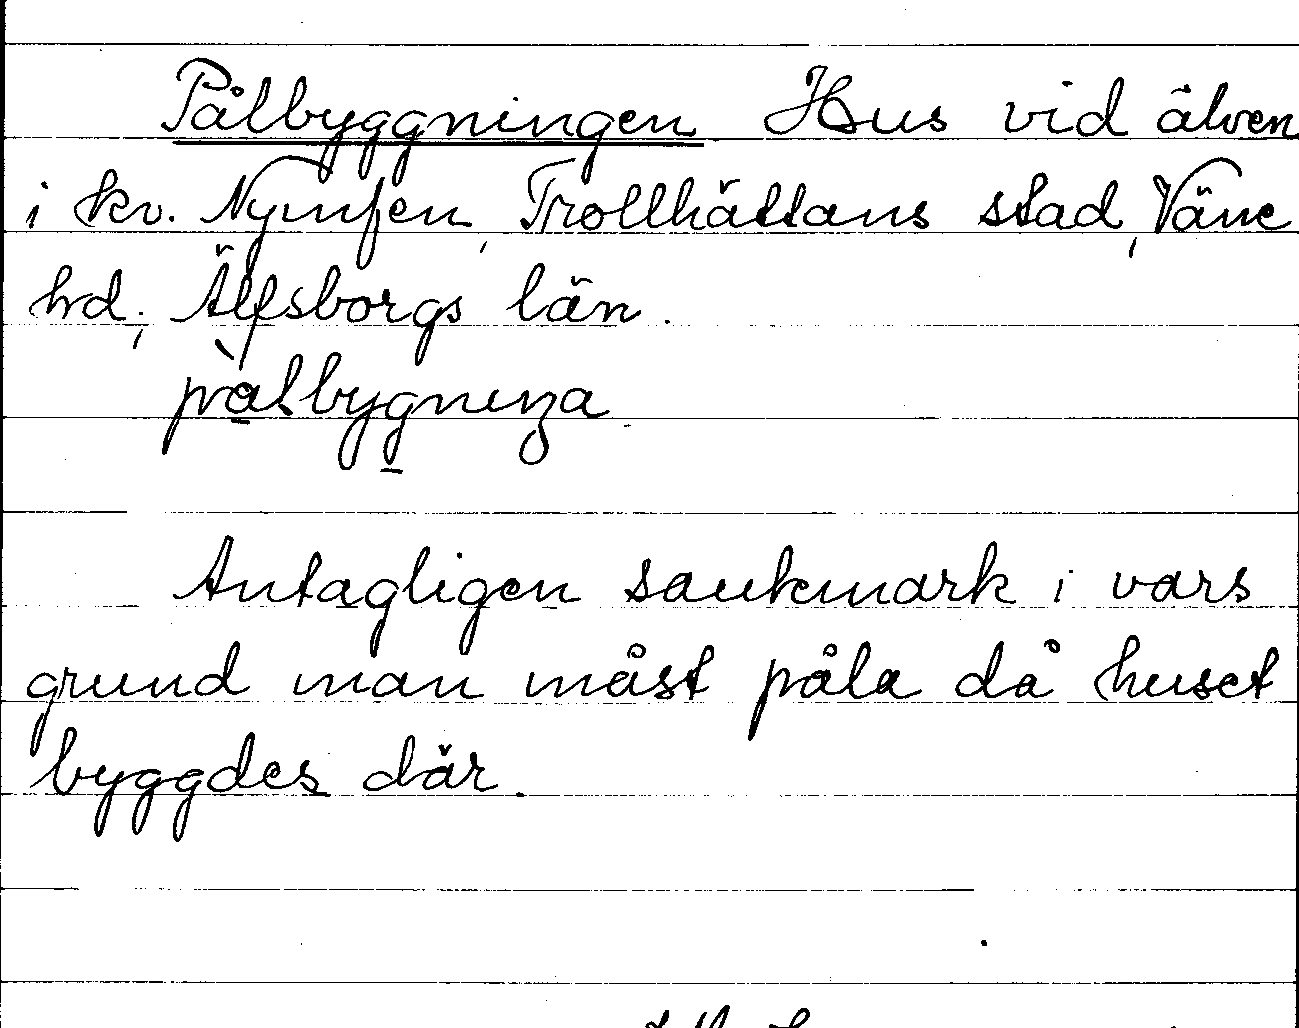 Pålbyggningen Hus vid älven
i kv. Nymfen, Trollhättans stad, Väne
hd., Älfsborgs län.
pàlbygnıŋa
Antagligen sankmark i vars
grund man måst påla då huset
byggdes där.